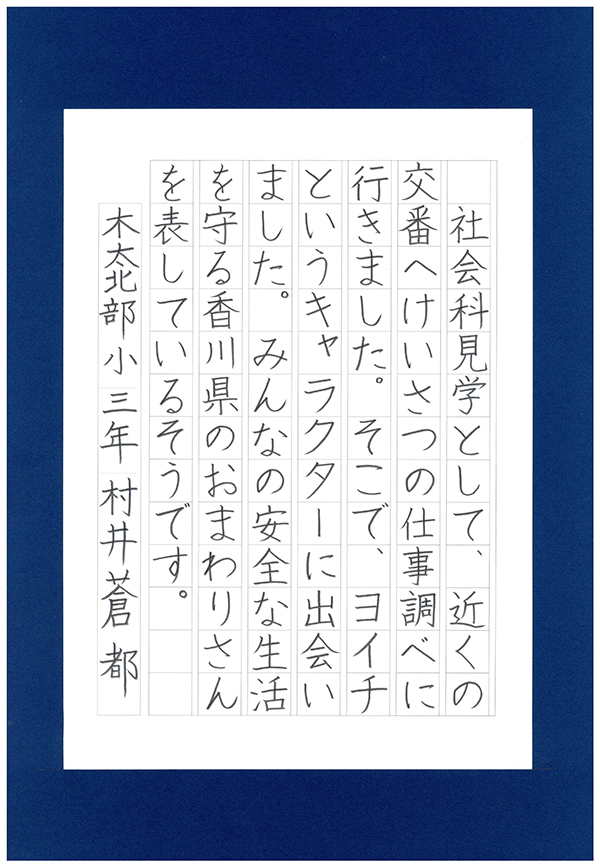 社会科見学として、近くの
交番へけいさつの仕事調べに
行きました。そこで、ヨイチ
というキャラクターに出会い
ました。みんなの安全な生活
を守る香川県のおまわりさん
を表しているそうです。
木太北部小三年村井蒼都